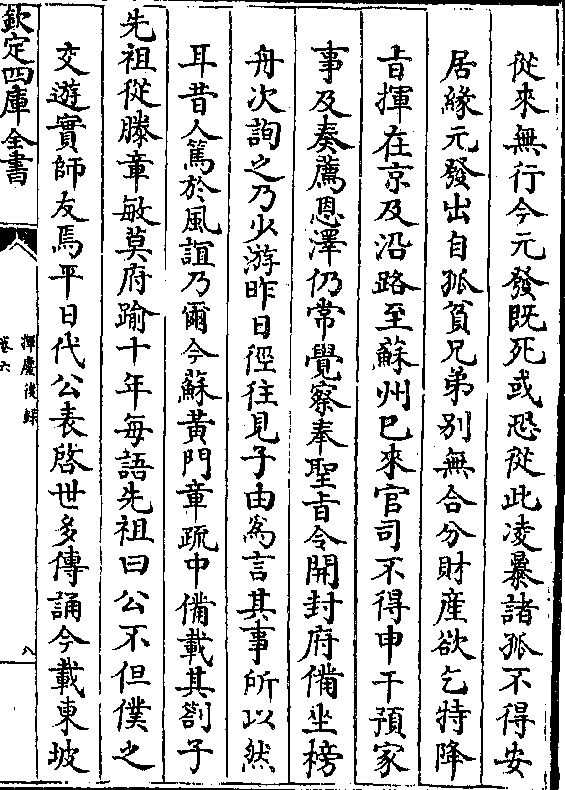 從來無行今元發既死或恐從此凌暴諸孤不得安
居緣元發出自孤貧兄弟別無合分財產欲乞特降
㫖揮在京及沿路至蘇州已來官司不得申干預家
事及奏薦恩澤仍常覺察奉聖㫖令開封府備坐榜
舟次詢之乃少游昨日徑往見子由為言其事所以然
耳昔人篤於風誼乃爾今蘇黃門章疏中備載其劄子
先祖從滕章敏莫府踰十年每語先祖曰公不但僕之
交遊實師友焉平日代公表啓世多傳誦今載東坡
欽定四庫全書
揮麈後録
卷六
八